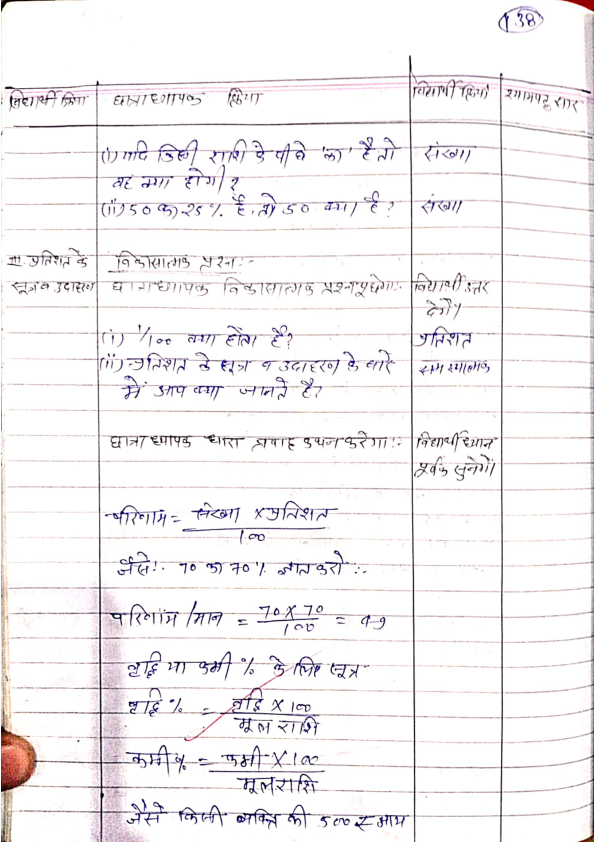 1.38
विद्यार्थी क्रिया छात्राध्यापक क्रिया विद्यार्थी क्रिया श्यामपट्ट सार
(i) यदि किसी राशि के पीछे 'का' है तो संख्या
वह क्या होगी?
(ii) 50 का 25% है, तो 50 क्या है? संख्या
III. प्रतिशत के विकासात्मक प्रश्न:-
सूत्र व उदाहरण छात्राध्यापक विकासात्मक प्रश्न पूछेगा:- विद्यार्थी उत्तर
देगें।
(i) 1/100 क्या होता है? प्रतिशत
(ii) प्रतिशत के सूत्र व उदाहरण के बारे समस्यात्मक
में आप क्या जानते है?
छात्राध्यापक धारा प्रवाह कथन करेगा:- विद्यार्थी ध्यान
पूर्वक सुनेगें।
परिणाम = संख्या x प्रतिशत
100
जैसे:- 70 का 70% ज्ञात करो :-
परिणाम /मान = 70 x 70 = 49
100
वृद्धि या कमी % के लिए सूत्र
वृद्धि % = वृद्धि x 100
मूल राशि
कमी % = कमी x 100
मूलराशि
जैसे किसी व्यक्ति की 500 रु आय